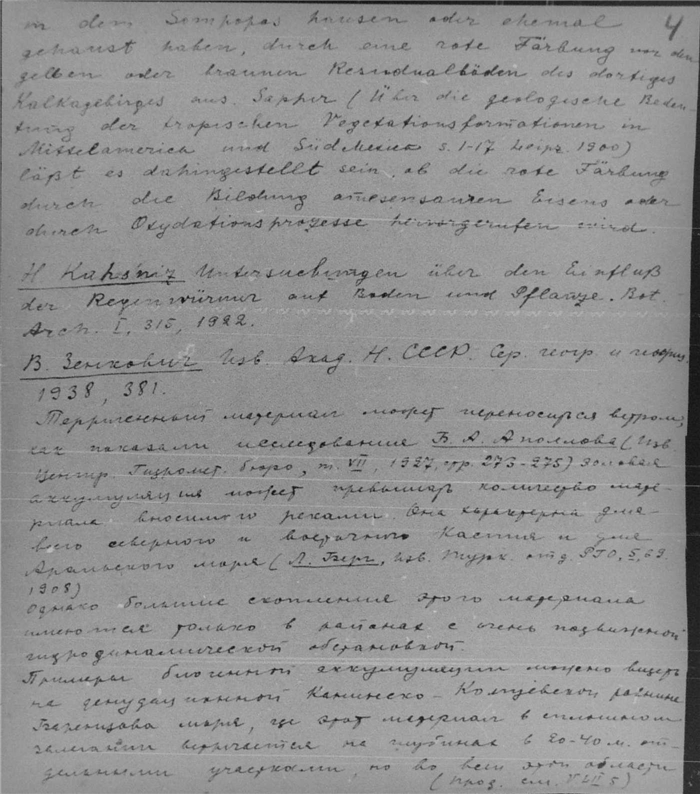 4
in dem Sompopos hausen oder ehemal
gehaust haben, durch eine rote Färbung vor den
gelben oder braunen Residualböden des dortiges
Kalkagebirges aus. Sapper (Über die geologische Bedeu-
tung der tropischen Vegetationsformationen in
Mittelamerica und Süd Mexico S. 1-17 Leipz. 1900)
läßt es dahingestellt sein, ob die rote Färbung
durch die Bildung ameisensauren Eisens oder
durch Oxydationsprozesse hervorgerufen wird.
H Kahsnitz Untersuchungen über den Einfluß
der Regenwürmer auf Boden und Pflanze. Bot.
Arch. I, 315, 1922.
В. Зенкович Изв. Акад. Н. СССР. Сер. геогр. и геофиз
1938, 381.
Терригенный материал может переноситься ветром,
как показали исследования Б. А. Аполлова (Изв.
Центр. Гидромет. бюро, т. VII, 1927, стр. 273-275) Эоловая
аккумуляция может превышать количество мате-
риала вносимого реками. Она характерна для
всего северного и восточного Каспия и для
Аральского моря (Л. Берг, Изв. Турк. отд. РГО, 5, 69.
1908)
Однако большие скопления этого материала
имеются только в районах с очень подвижной
гидродинамической обстановкой.
Примеры биогенной аккумуляции можно видеть
на денудационной Канинско-Колгуевской равнине
Баренцова моря, где этот материал в сплошном
залегании встречается на глубинах в 20-40 м. от-
дельными участками, но во всей этой области
(прод. см. VIII 5)